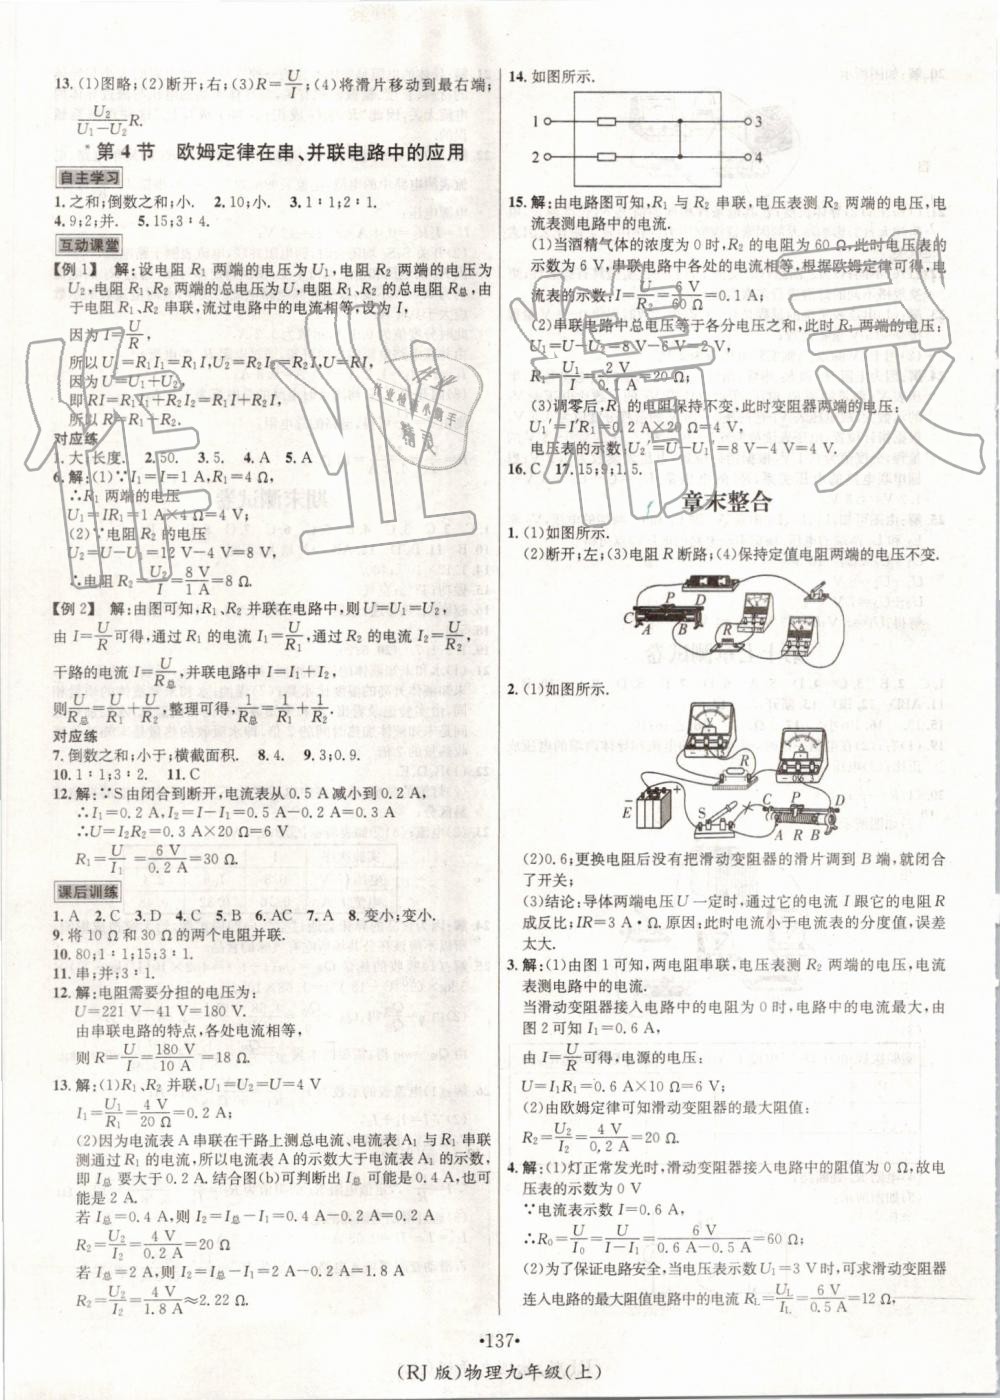 13. (1)图略;(2)断开;右;(3)R=U/I;(4)将滑片移动到最右端;
U₂/(U₁-U₂)R.
*第4节 欧姆定律在串、并联电路中的应用
自主学习
1.之和;倒数之和;小. 2.10;小. 3.1∶1;2∶1.
4.9;2;并. 5.15;3∶4.
互动课堂
【例1】 解:设电阻R₁两端的电压为U₁,电阻R₂两端的电压为
U₂,电阻R₁、R₂两端的总电压为U,电阻R₁、R₂的总电阻R总,由
于电阻R₁、R₂串联,流过电路中的电流相等,设为I,
因为I=U/R,
所以U₁=R₁I₁=R₁I,U₂=R₂I₂=R₂I,U=RI,
因为U=U₁+U₂,
即RI=R₁I₁+R₂I₂=R₁I+R₂I,
所以R=R₁+R₂.
对应练
1.大;长度. 2.50. 3.5. 4.A 5.A
6.解:(1)∵I₁=I=1 A,R₁=4 Ω,
∴R₁两端的电压
U₁=IR₁=1 A×4 Ω=4 V
(2)∵电阻R₂的电压
U₂=U-U₁=12 V-4 V=8 V
∴电阻R₂=U₂/I=8 V/1 A=8 Ω.
【例2】 解:由图可知,R₁、R₂并联在电路中,则U=U₁=U₂,
由I=U/R可得,通过R₁的电流I₁=U/R₁,通过R₂的电流I₂=U/R₂
干路的电流I=U/R总,并联电路中I=I₁+I₂,
则U/R总=U/R₁+U/R₂,整理可得,1/R总=1/R₁+1/R₂.
对应练
7.倒数之和;小于;横截面积. 8.4. 9.3;0.9.
10.1∶1;3∶2. 11.C
12.解:∵S由闭合到断开,电流表从0.5 A减小到0.2 A,
∴I₁=0.2 A,I₂=I-I₁=0.5 A-0.2 A=0.3 A
∴U=I₂R₂=0.3 A×20 Ω=6 V
R₁=U/I₁=6 V/0.2 A=30 Ω.
课后训练
1.A 2.C 3.D 4.C 5.B 6.C 7.A 8.变小;变小.
9.将10 Ω和30 Ω的两个电阻并联.
10.80;1∶1;15;3∶1.
11.串;并;3∶1.
12.解:电阻需要分担的电压为:
U=221 V-41 V=180 V.
由串联电路的特点,各处电流相等,
则R=U/I=180 V/10 A=18 Ω.
13.解:(1)R₁、R₂并联,U₁=U₂=U=4 V
I₁=U₁/R₁=4 V/20 Ω=0.2 A;
(2)因为电流表A串联在干路上测总电流、电流表A₁与R₁串联
测通过R₁的电流,所以电流表A的示数大于电流表A₁的示数,
即I总要大于0.2 A.结合图(b)可判断出I总可能是0.4 A,也可
能是2 A.
若I总=0.4 A,则I₂=I总-I₁=0.4 A-0.2 A=0.2 A
R₂=U₂/I₂=4 V/0.2 A=20 Ω
若I总=2 A,则I₂=I总-I₁=2 A-0.2 A=1.8 A
R₂=U₂/I₂=4 V/1.8 A≈2.22 Ω.
14.如图所示.
1 3
2 4
15.解:由电路图可知,R₁与R₂串联,电压表测R₂两端的电压,电
流表测电路中的电流.
(1)当酒精气体的浓度为0时,R₂的电阻为60 Ω.此时电压表的
示数为6 V,串联电路中各处的电流相等,根据欧姆定律可得,电
流表的示数:I=U₂/R₂=6 V/60 Ω=0.1 A;
(2)串联电路中总电压等于各分电压之和,此时R₁两端的电压:
U₁=U-U₂=8 V-6 V=2 V,
R₁=U₁/I=2 V/0.1 A=20 Ω.
(3)调零后,R₁的电阻保持不变,此时变阻器两端的电压:
U₁′=I′R₁=0.2 A×20 Ω=4 V,
电压表的示数:U₂′=U-U₁′=8 V-4 V=4 V.
16.C 17.15;9;1.5.
章末整合
1.(1)如图所示.
(2)断开;左;(3)电阻R断路;(4)保持定值电阻两端的电压不变.
C P D
A B R
2.(1)如图所示.
V A
R
E S C P D
A R B
(2)0.6;更换电阻后没有把滑动变阻器的滑片调到B端,就闭合
了开关;
(3)结论:导体两端电压U一定时,通过它的电流I跟它的电阻R
成反比;IR=3 A·Ω.原因:此时电流小于电流表的分度值,误差
太大.
3.解:(1)由图1可知,两电阻串联,电压表测R₂两端的电压,电流
表测电路中的电流.
当滑动变阻器接入电路中的电阻为0时,电路中的电流最大,由
图2可知I₁=0.6 A,
由I=U/R可得,电源的电压:
U=I₁R₁=0.6 A×10 Ω=6 V;
(2)由欧姆定律可知滑动变阻器的最大阻值:
R₂=U₂/I₂=4 V/0.2 A=20 Ω.
4.解:(1)灯正常发光时,滑动变阻器接入电路中的阻值为0 Ω,故电
压表的示数为0 V
∵电流表示数I=0.6 A,
∴R₀=U/I₀=U/(I-I₁)=6 V/(0.6 A-0.5 A)=60 Ω;
(2)为了保证电路安全,当电压表示数U₁=3 V时,可求滑动变阻器
连入电路的最大阻值电路中的电流R_L=U/I_L=6 V/0.5 A=12 Ω,
•137•
(RJ版)物理九年级(上)
作业精灵